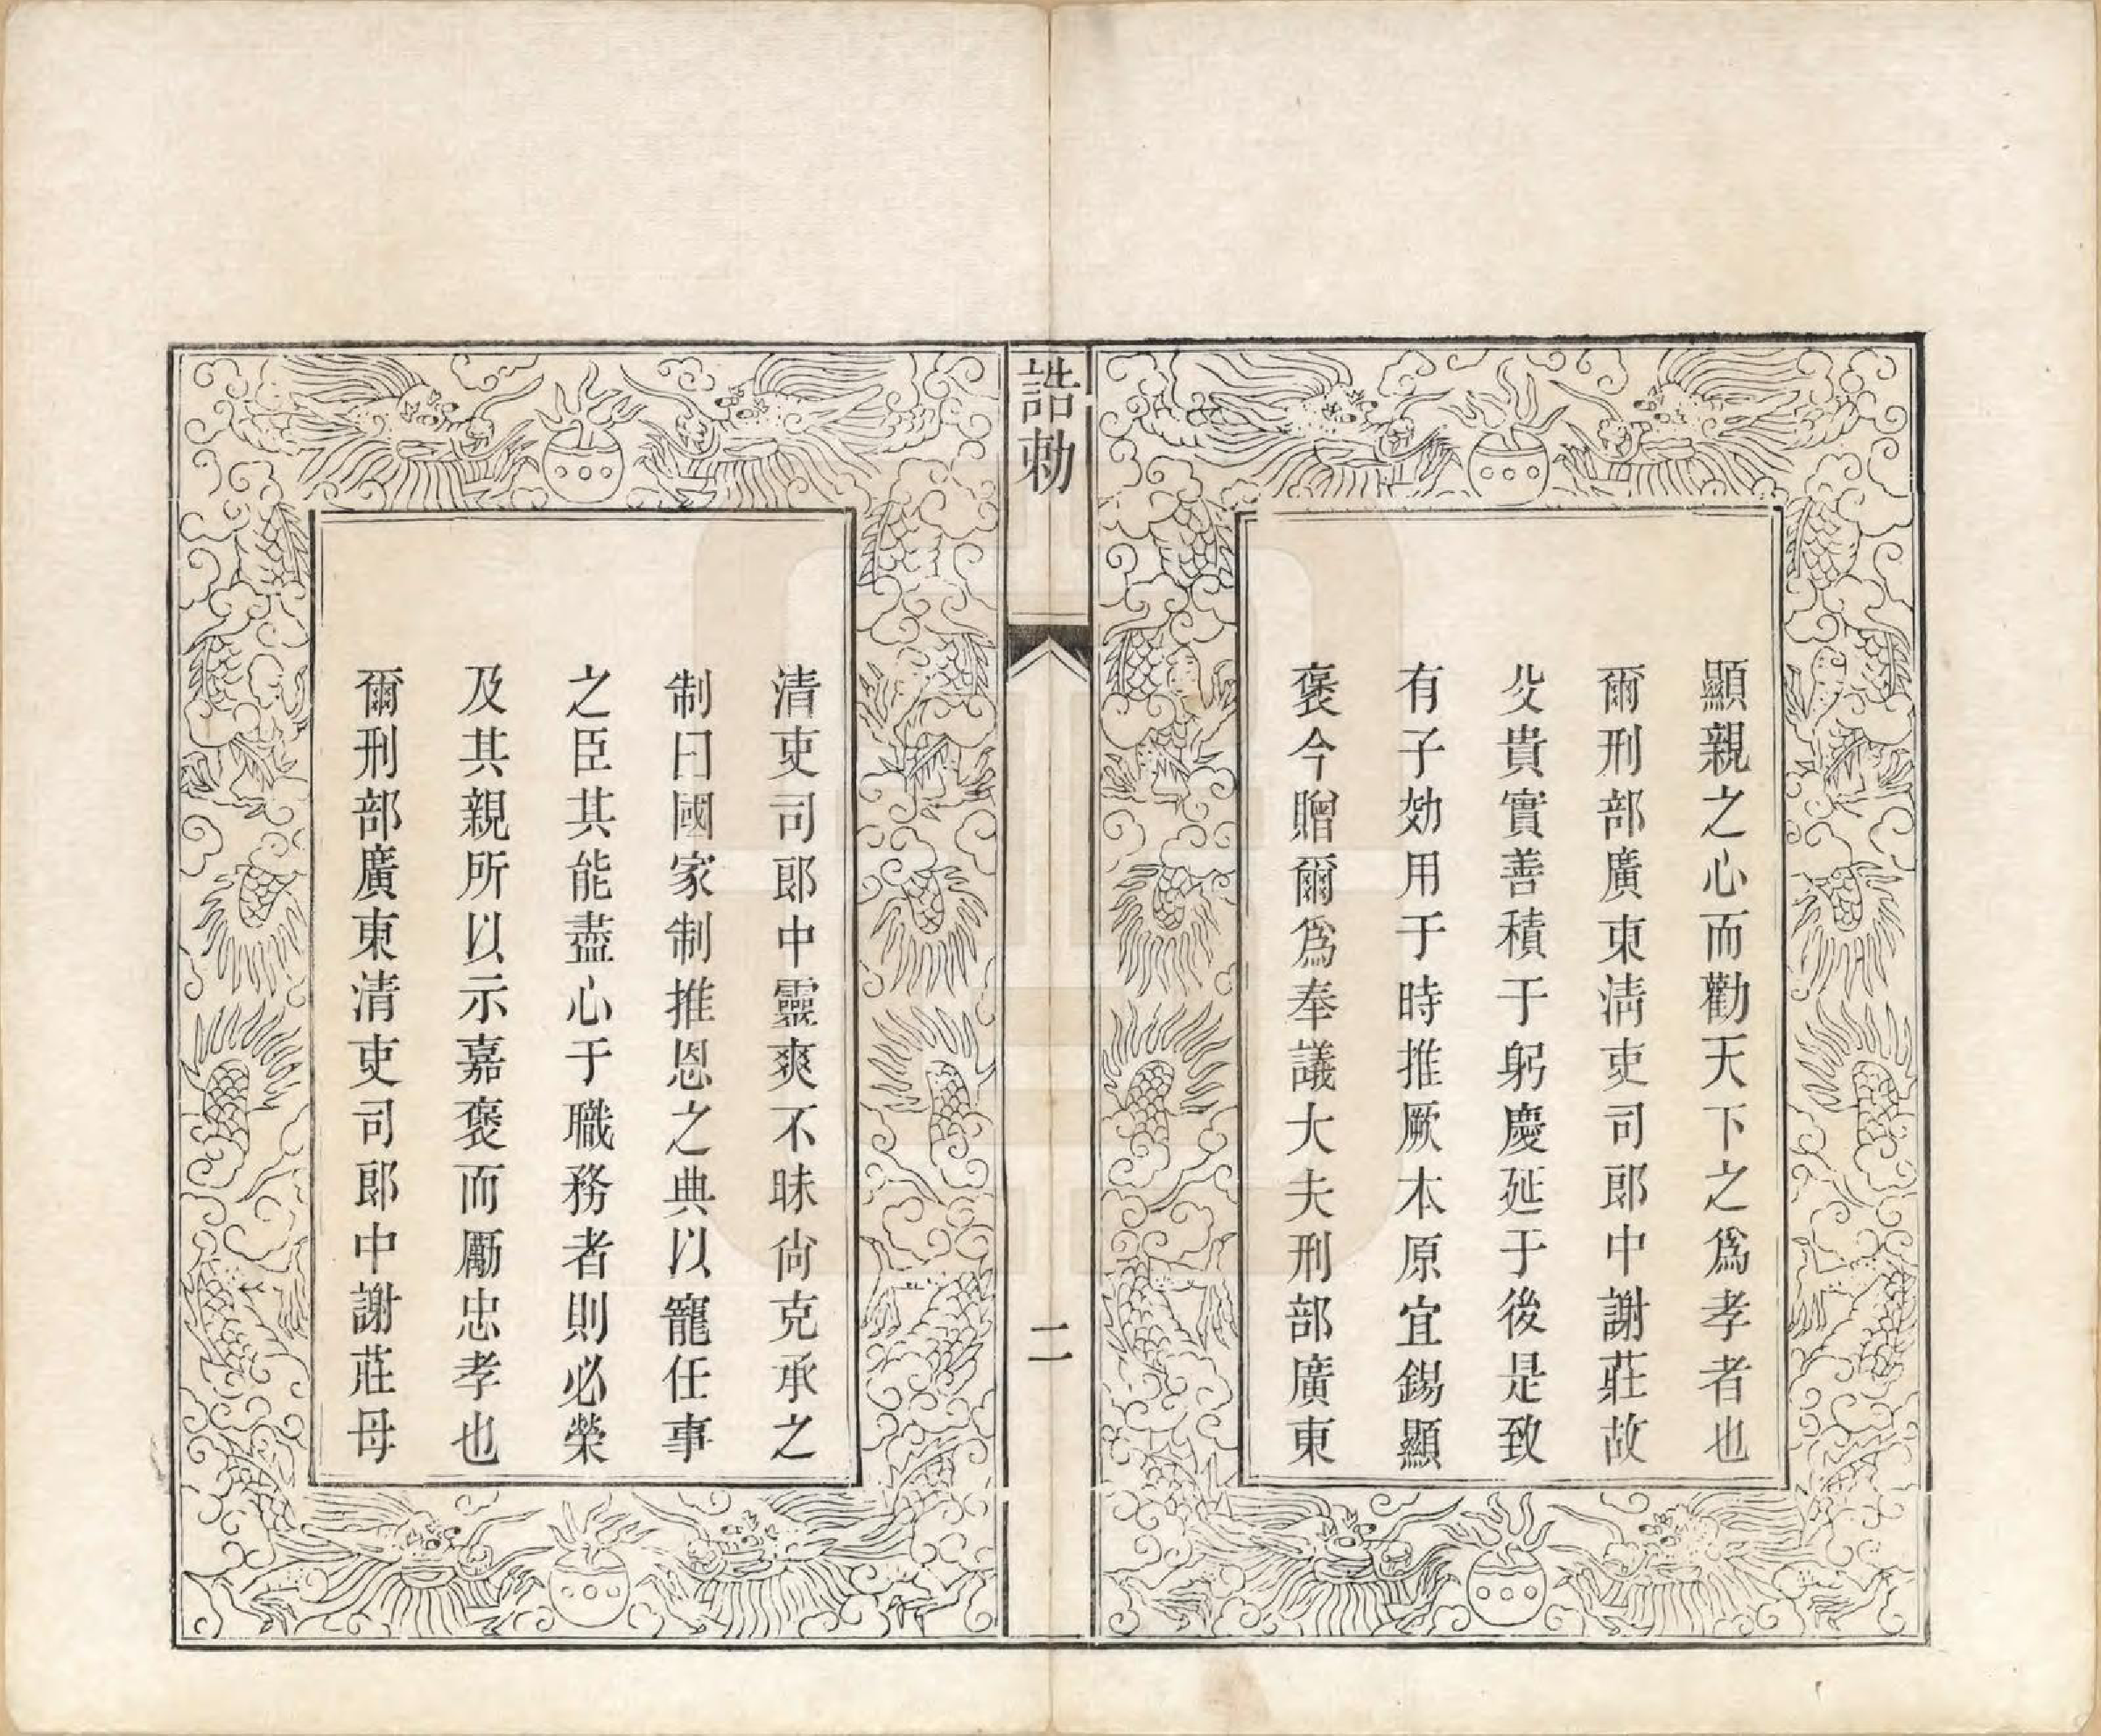 顯親之心而勸天下之爲孝者也
爾刑部廣東清吏司郎中謝莊故
父貴實善積于躬慶延于後是致
有子効用于時推厥本原宜錫顯
褒今贈爾爲奉議大夫刑部廣東
誥勅
二
清吏司郎中靈爽不昧尚克承之
制曰國家制推恩之典以寵任事
之臣其能盡心于職務者則必榮
及其親所以示嘉褒而勵忠孝也
爾刑部廣東清吏司郎中謝莊母